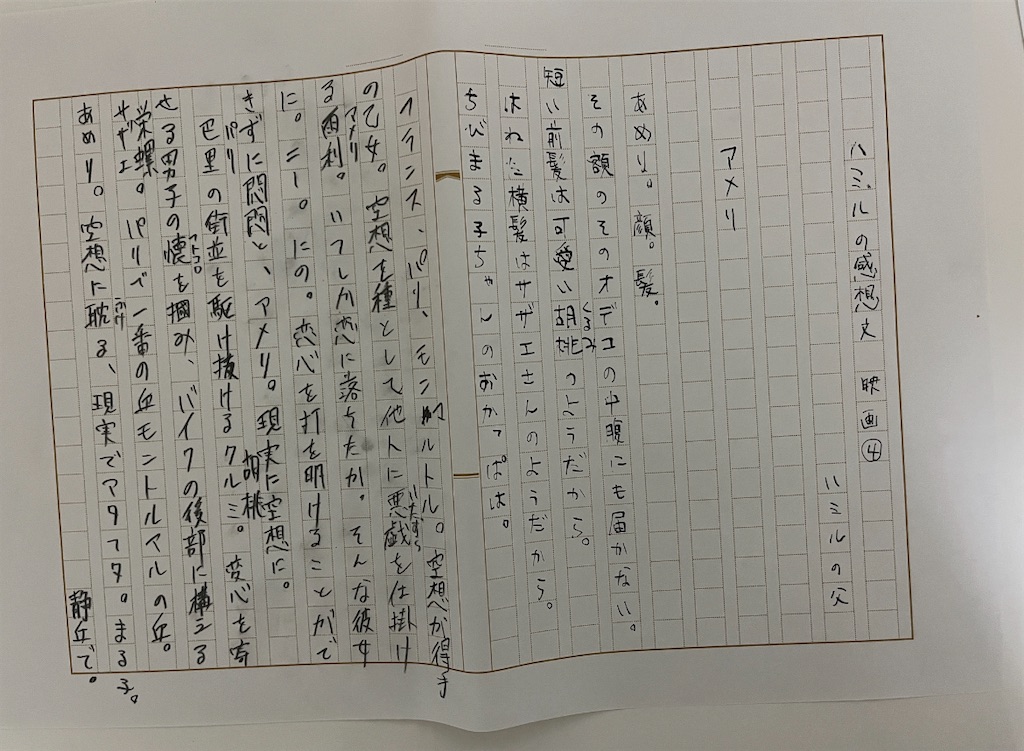 ハミルの感想文　映画④
ハミルの父
アメリ
あめり。顔。髪。
その額のそのオデコの中腹にも届かない。
短い前髪は可愛い胡桃のようだから。
くるみ
はねた横髪はサザエさんのようだから。
ちびまる子ちゃんのおかっぱは。
フランス、パリ、モンマルトル。空想が得手
の乙女。空想を種として他人に悪戯を仕掛け
いたずら
る雨利。いつしか恋に落ちたか。そんな彼女
アメリ
に。ニー。にの。恋心を打を明けることがで
きずに悶悶と、アメリ。現実に空想に。
巴里の街並を駆け抜けるクルミ。恋心を寄
パリ
胡桃
せる男子の懐を掴み、バイクの後部に構える
栄螺。パリで一番の丘モントルマルの丘。
サザエ
あめり。空想に耽る、現実でアタマタ。まる子。
ふけ
静丘で。